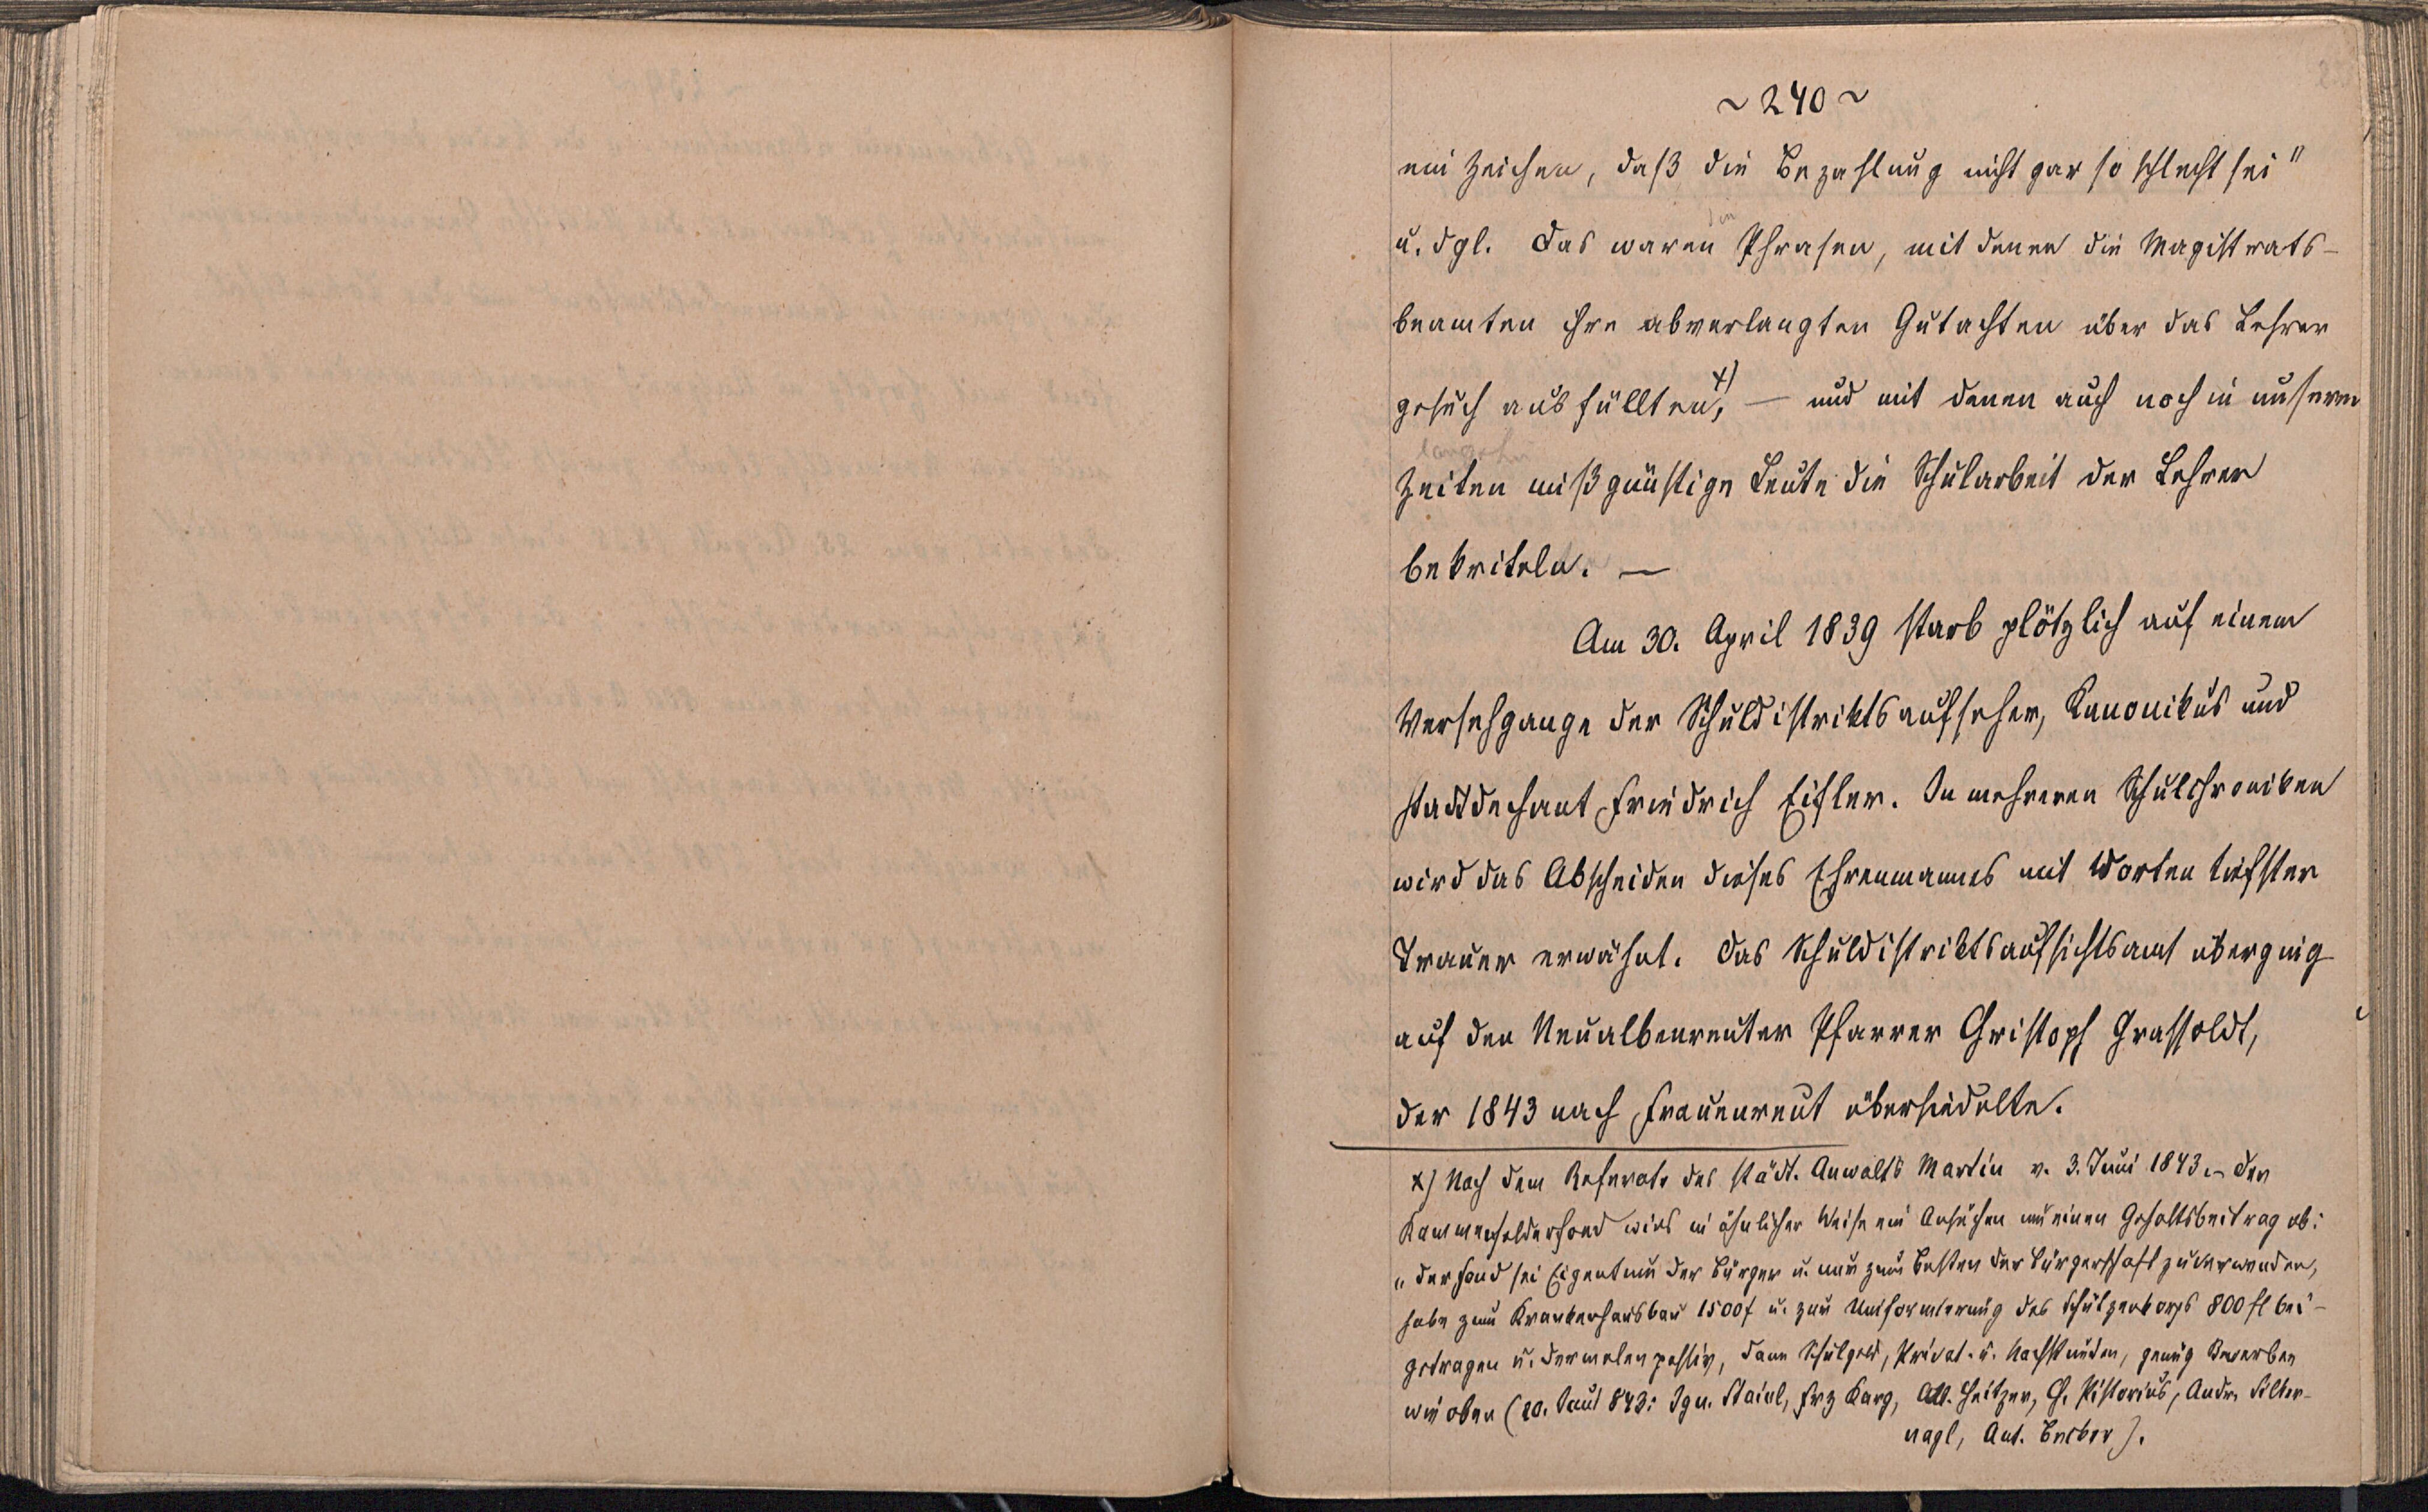 ~ 240 ~
ein Zeichen, daß die Bezahlung nicht gar so schlecht sei"
u. dgl. Das waren die Phrasen, mit denen die Magistrats-
beamten ihre abverlangten Gutachten über das Lehrer
gesuch ausfüllten,x) — und mit denen auch noch in unseren
Zeiten mißgünstige Leute die Schularbeit der Lehrer
bekriteln. —
Am 30. April 1839 starb plötzlich auf einem
Versehgange der Schuldistriktsaufseher, Kanonikus und
Stadtdechant Friedrich Eisler. In mehreren Schulchroniken
wird das Abscheiden dieses Ehrenmannes mit Worten tiefster
Trauer erwähnt. Das Schuldistriktsaufsichtsamt überging
auf den Neualbenreuter Pfarrer Christoph Grassoldt,
der 1843 nach Frauenreut übersiedelte.
x) Nach dem Referate des städt. Anwalts Martin v. 3. Juni 1843. – Der
Kammerfelderfond wies in ähnlicher Weise ein Ansuchen um einen Gehaltsbeitrag ab:
„der Fond sei Eigentum der Bürger u. nur zum Besten der Bürgerschaft zu verwenden,
habe zum Krankenhausbau 1500 f u. zur Uniformierung des Schützenkorps 800 fl bei-
getragen u. dermalen passiv, dann Schulgeld, Privat- u. Nachstunden, genug Bewerber
wie oben (20. Juni 843: Ign. Staidl, Frz Karg, Ad. Heitzer, G. Pistorius, Andr. Silber-
nagl, Ant. Becher).